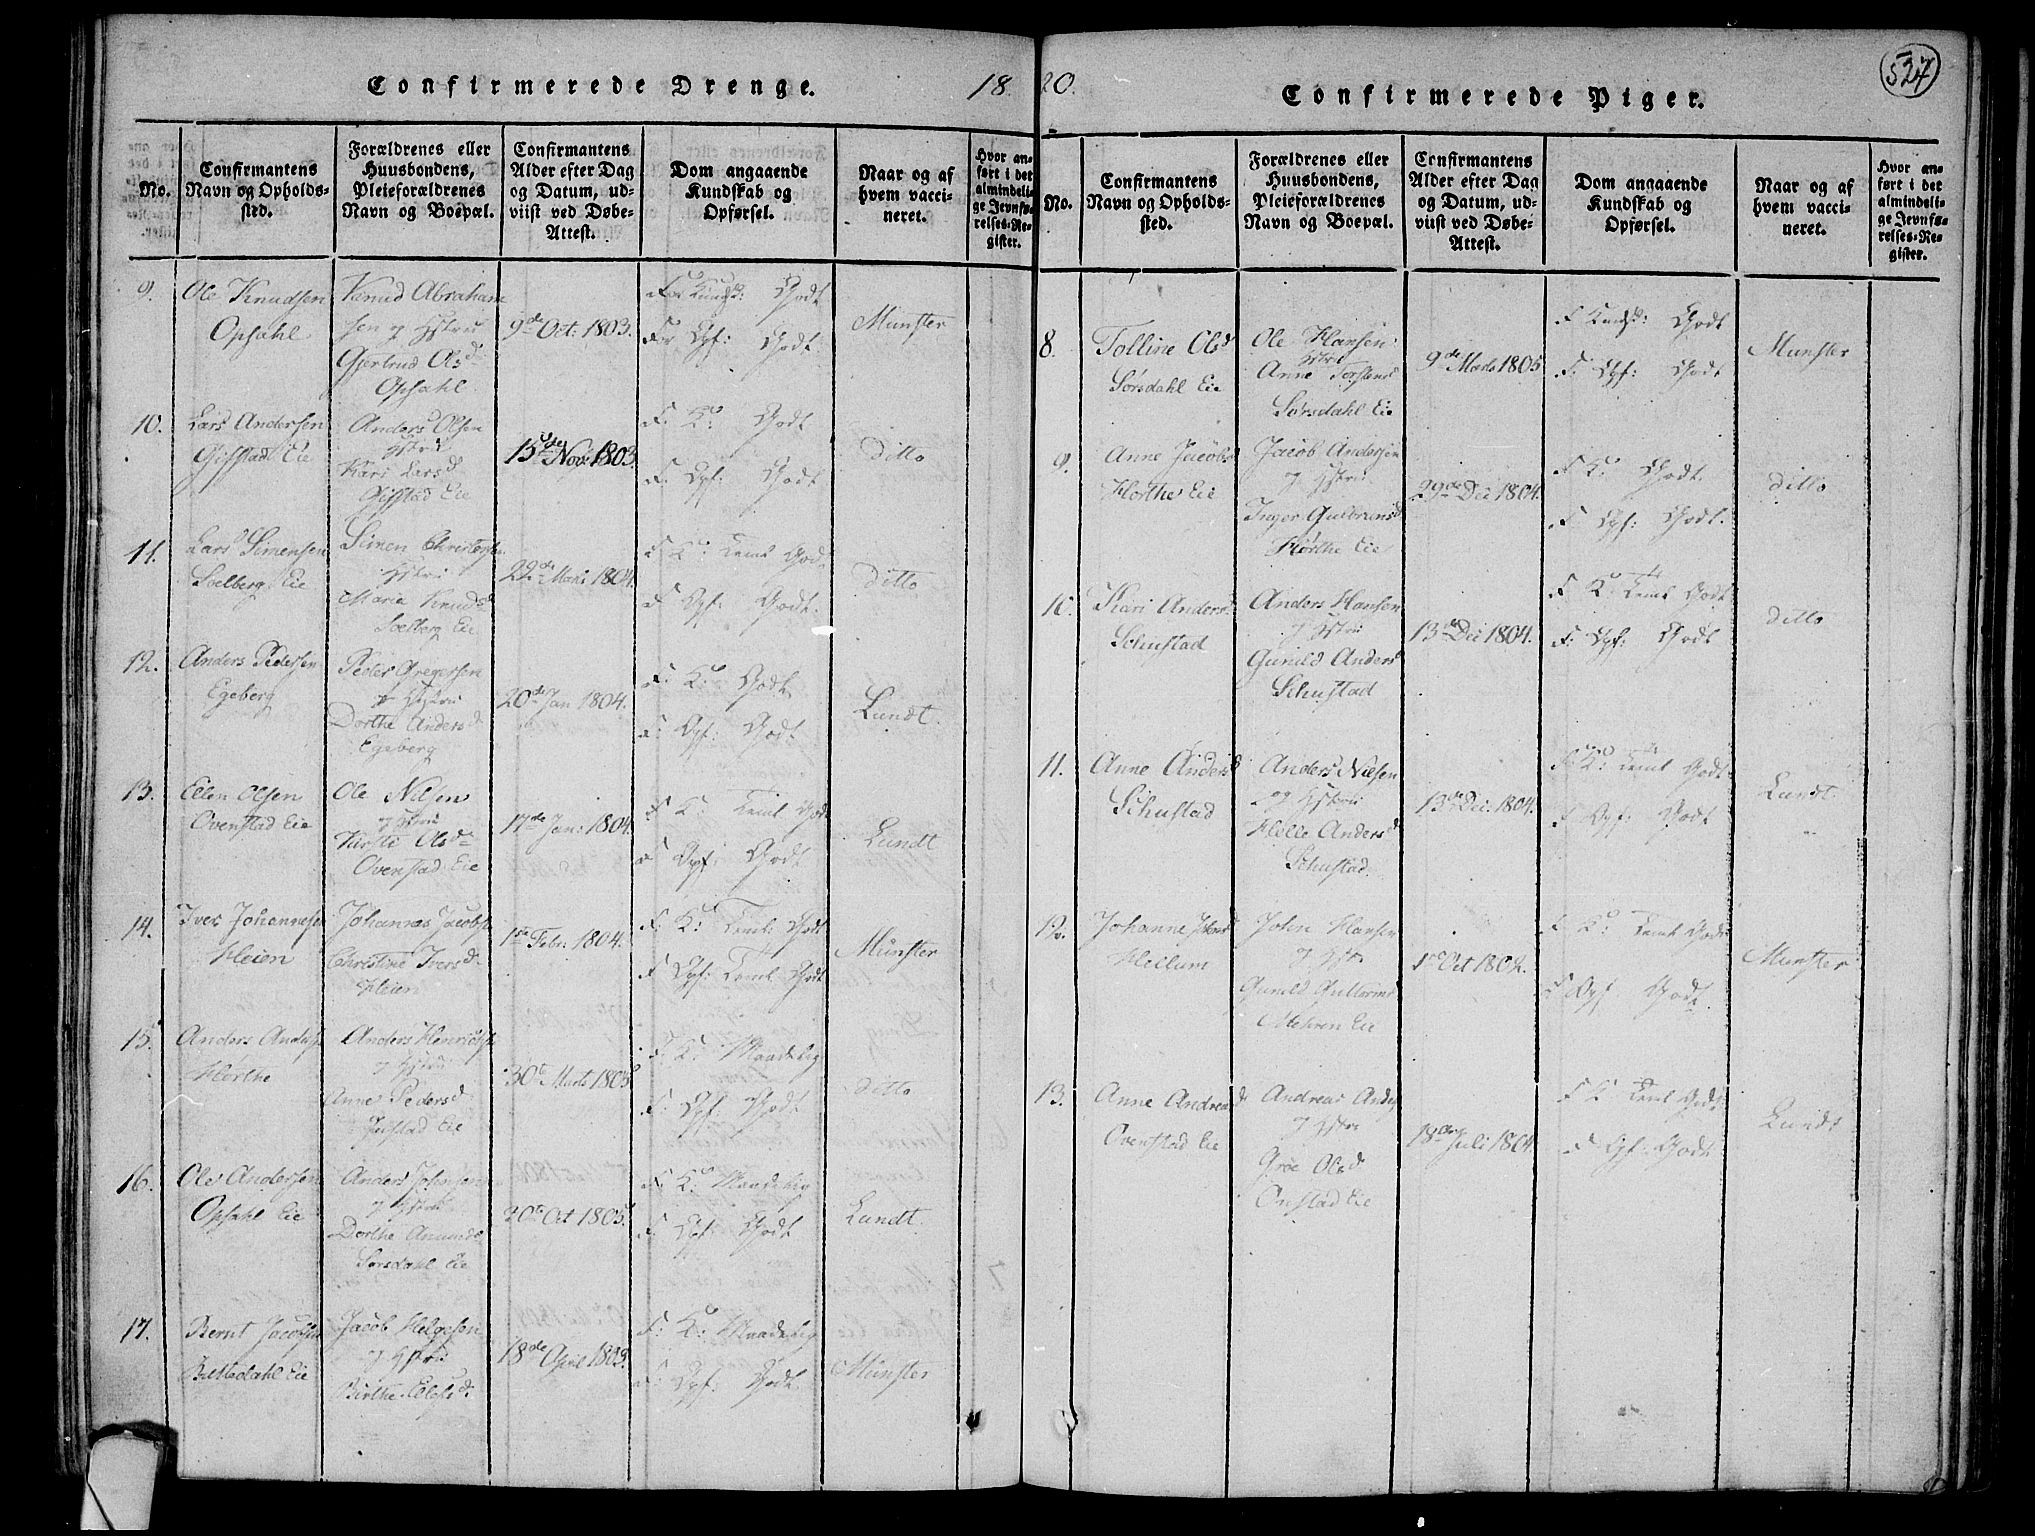 Confirmerede Drenge.
18
No.
Confirmantens Navn og Opholds-sted.
Forældrenes eller Huusbondens, Pleieforældrenes Navn og Boepæl.
Confirmantens Alder efter Dag og Datum, ud-viist ved Døbe-Attest.
Dom angaaende Kundskab og Opførsel.
Naar og af hvem vacci-neret.
Hvor an-ført i det almindeli-ge Jevnfø-relses-Re-gister.
9.
Ole Knudsen
Opsahl
Knud Abraham
sen og Hstru
Gjertrud Olsd
Opsahl
9de Oct: 1803.
For Kundsk: Godt
For Opf: Godt
Munster
10.
Lars Andersen
Gifstad Eie
Anders Olsen
Hstru
Kari Larsd
Gifstad Eie
15de Nov: 1803
F. K: Godt
F. Opf: Godt
Ditto
11.
Lars Simensen
Soelberg Eie
Simen Christophe
Hstru
Maria Knudsd
Soelberg Eie
22de Marti 1804.
F K: Teml Godt
F Opf: Godt.
Ditto
12.
Anders Pedersen
Egeberg
Peder Gregersen
og Hstru
Dorthe Andersd
Egeberg
20de Jan 1804.
F. K: Godt
F: Opf: Godt
Lundt.
13.
Ellen Olsen
Ovenstad Eie
Ole Nilsen
og Hstru
Karsti Olsd
Ovenstad Eie
17de Jan: 1804.
F. K: Teml Godt
F Opf: Godt
Lundt
14.
Iver Johannesen
Heien
Johannes Jacobs
Christine Iversd
Heien
1ste Febr: 1804.
F. K: Teml: Godt
F Opf: Teml Godt
Munster
15.
Anders Anders
Horthe
Anders Henrichs
og Hstru
Anne Pedersd
30te Marts 1805
F. K: Maadelig
F: Opf: Godt
Ditto
16.
Ole Andersen
Opsahl Eie
Anders Johnsen
og Hstru
Dorthe Amunds
Sørsdahl Eie
20te Oct 1805.
F K: Maadelig
F: Opf: Godt
Lundt.
17.
Bernt Jacobsen
Jacob Helgesen
og Hstru
Birthe
18de April 1803.
F: K: Maadelig
F: Opf: Godt.
Munster
20.
Confirmerede Piger.
527
No.
Confirmantens Navn og Opholds-sted.
Forældrenes eller Huusbondens, Pleieforældrenes Navn og Boepæl.
Confirmantens Alder efter Dag og Datum, ud-viist ved Døbe-Attest.
Dom angaaende Kundskab og Opførsel.
Naar og af hvem vacci-neret.
Hvor an-ført i det almindeli-ge Jevnfø-relses-Re-gister.
8.
Tolline Olsd
Sørsdahl Eie
Ole Hansen
Hstru
Anne Torstens
Sørsdahl Eie
9de Marts 1805
F Kundsk: Godt
F: Opf: Godt
Munster
9.
Anne Jacobs
Horthe Eie
Jacob Andersen
og Hstru
Inger Gulbransd
Horthe Eie
29de Dec 1804.
F K: Godt.
F Opf: Godt.
Ditto
10.
Kari Andersd
Schustad
Anders Hansen
og Hstru
Gunild Andersd
Schustad
13de Dec 1804.
F K Teml Godt
F: Opf: Godt
Ditto
11.
Anne Andersd
Schustad
Anders Nielsen
og Hstru
Helle Andersd
Schustad
13de Dec: 1804.
F K: Teml Godt
F Opf: Godt
Lundt.
12.
Johanne Johnsd
Heilum
John Hansen
og Hstr
Gunild
Mehren Eie
1ste Oct 1802.
F K: Teml Godt
F Opf Godt.
Munster
13.
Anne Andreasd
Ovenstad Eie
Andreas Anders
og Hstru
Groe Olsd
Onstad Eie
18de Juli 1804
F K Teml Godt
F Opf: Godt
Lundt